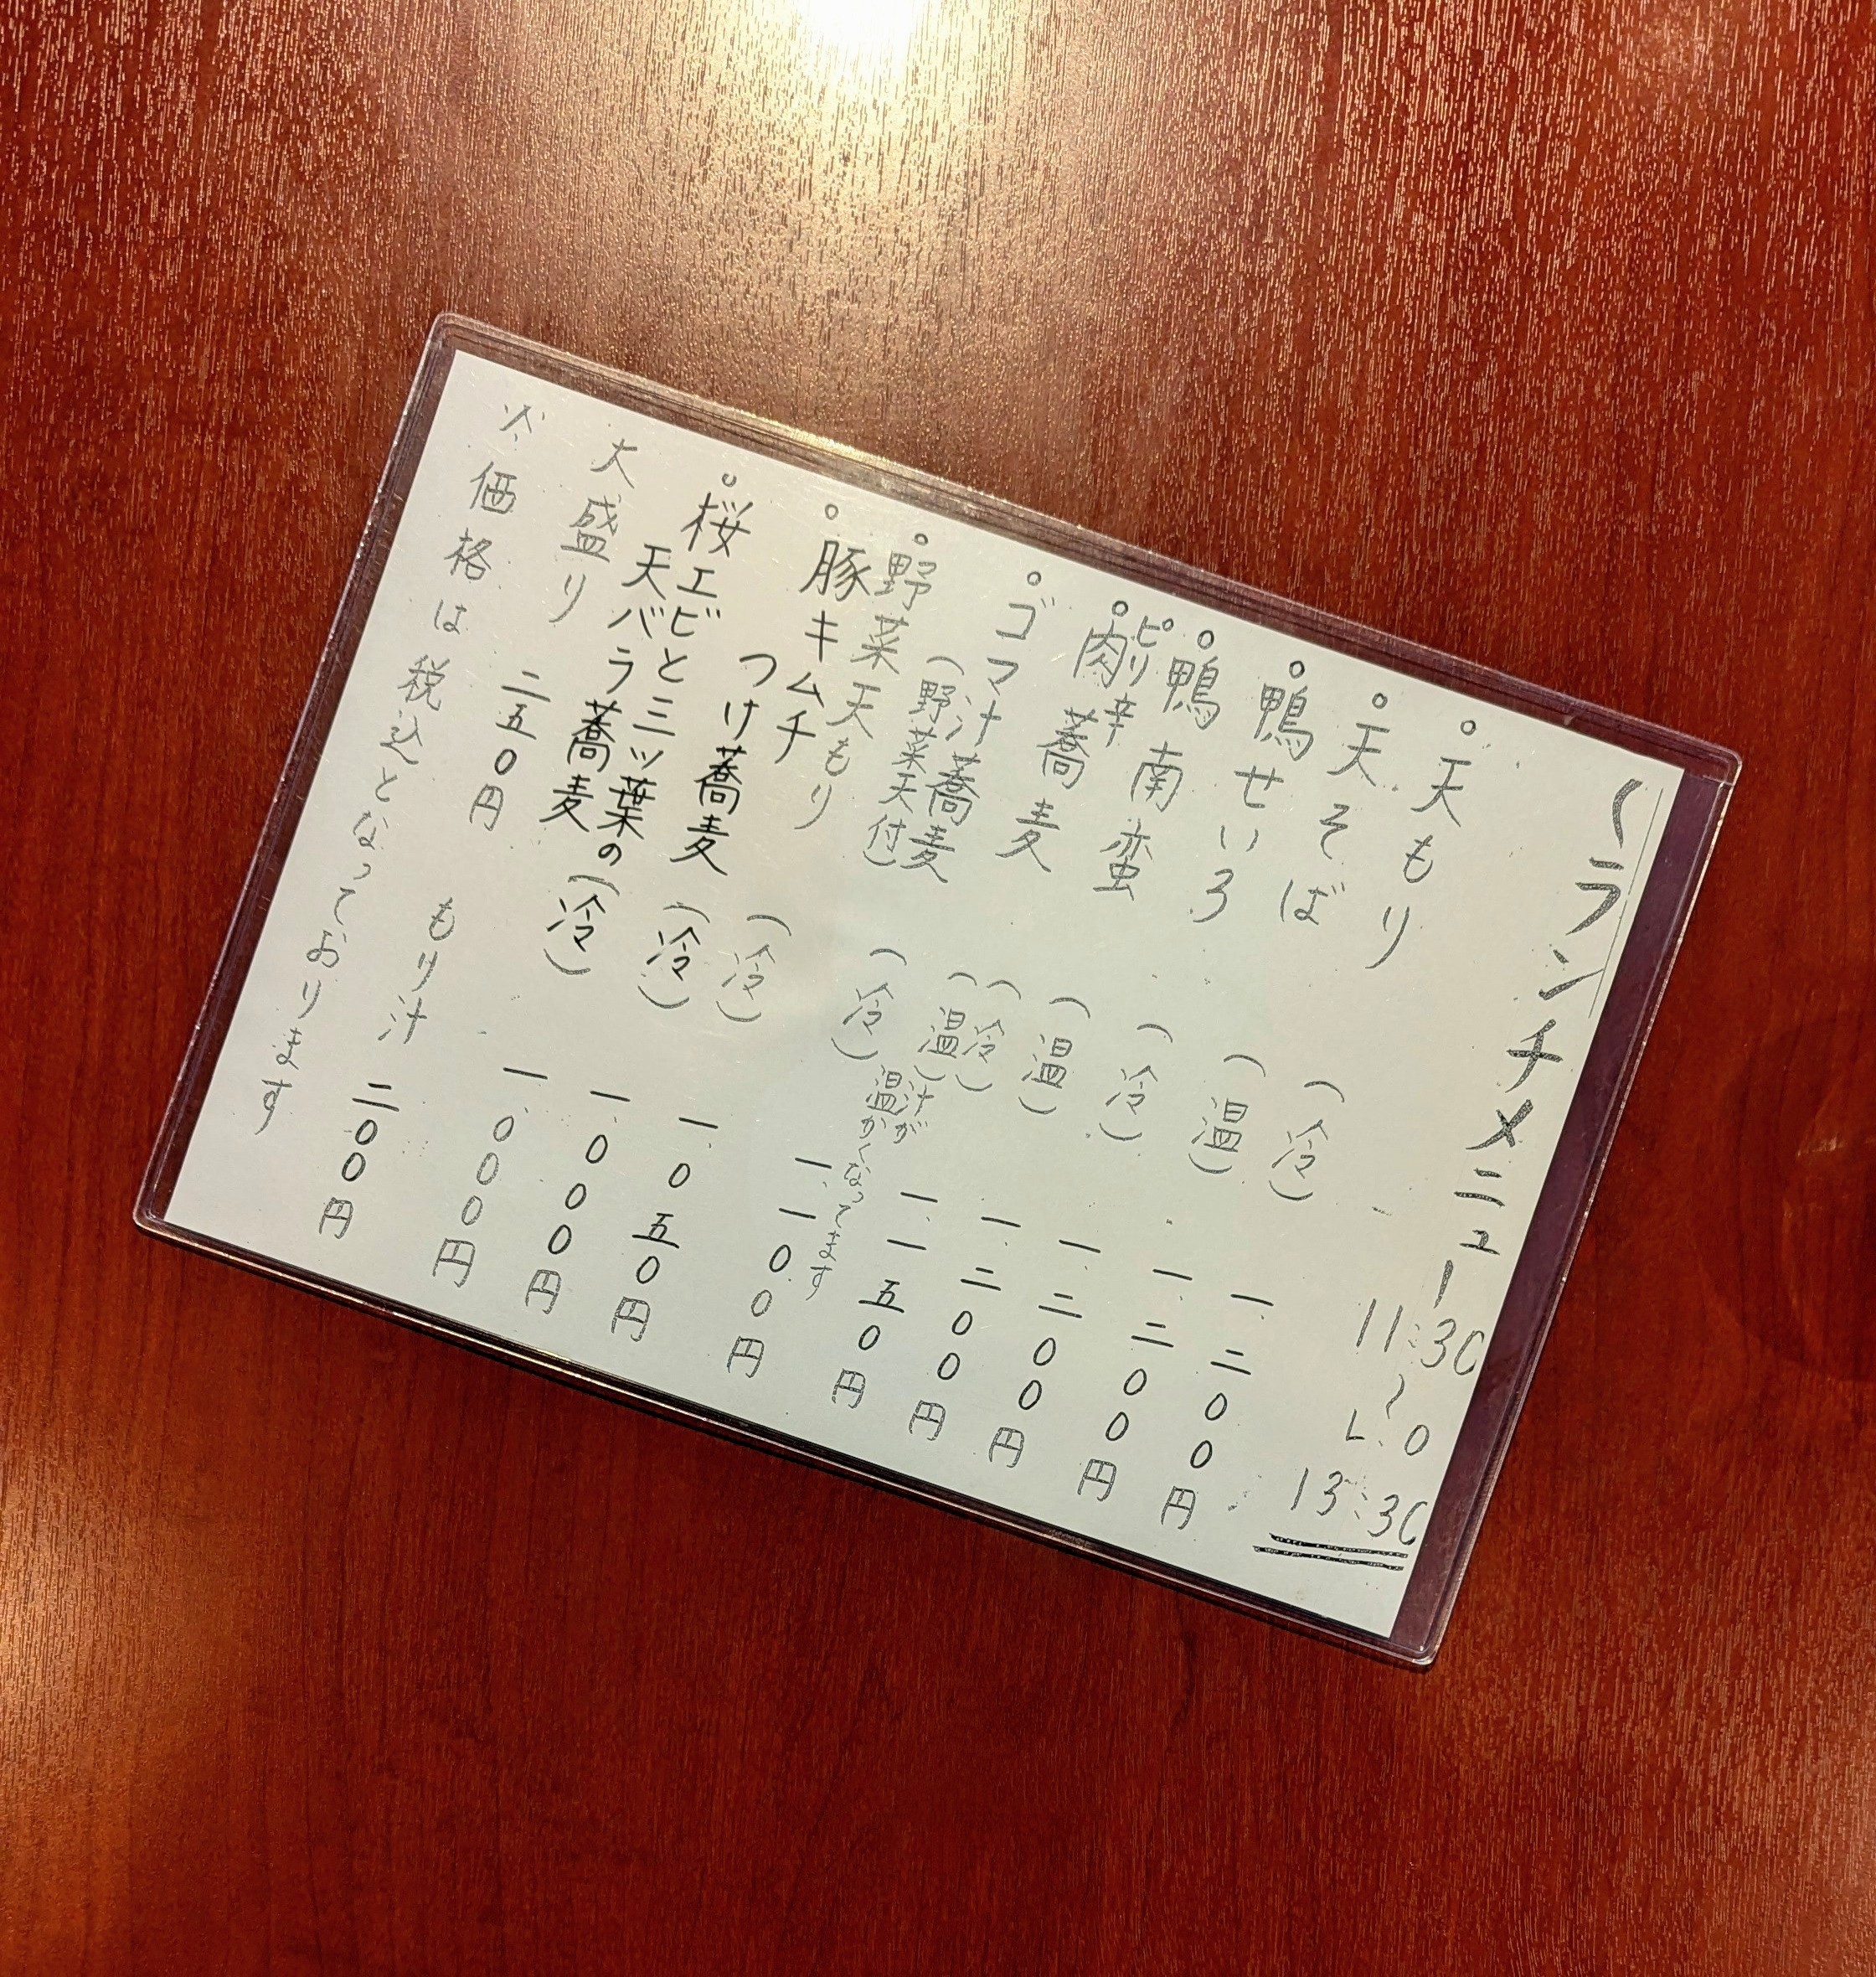 〈ランチメニュー 11:30〜L.O 13:30
○天もり (冷) 一、二〇〇円
○天そば (温) 一、二〇〇円
○鴨せいろ (冷) 一、二〇〇円
○鴨南蛮 (温) 一、二〇〇円
○ピリ辛
肉蕎麦 (冷)(温) 一、一五〇円
○ゴマ汁蕎麦
(野菜天付) (冷) 汁が温かくなってます 一、一〇〇円
○野菜天もり (冷) 一、〇五〇円
○豚キムチ
つけ蕎麦 (冷) 一、〇〇〇円
○桜エビと三ッ葉の
天バラ蕎麦 (冷) 一、〇〇〇円
大盛り 二五〇円 もり汁 二〇〇円
※価格は税込となっております